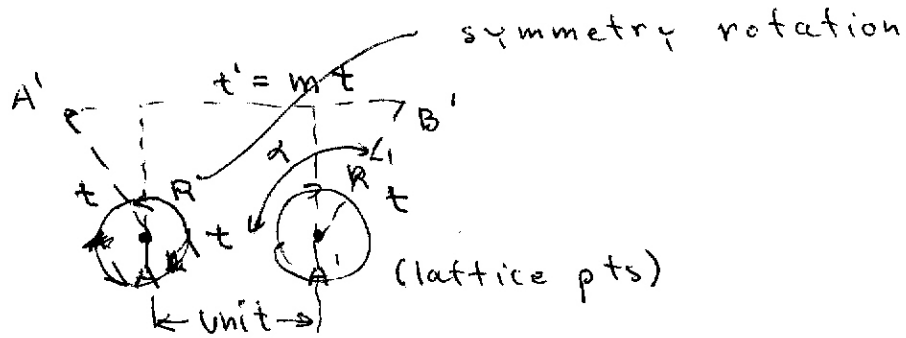 symmetry rotation
t' = m t
A' B'
α
t R R t
t
A A' (lattice pts)
unit